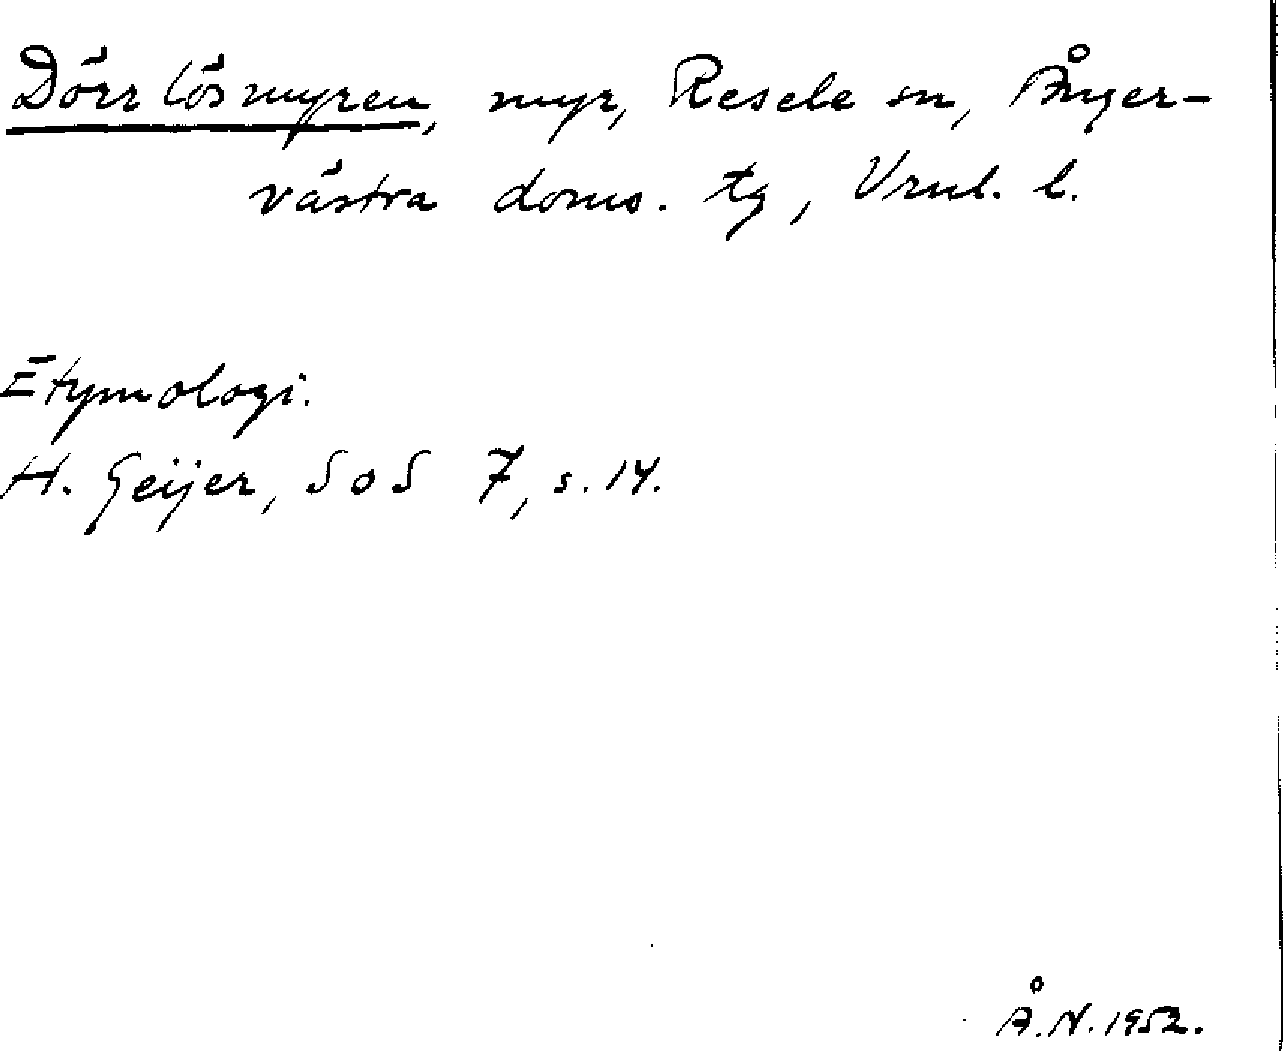 Dörrlösmyren, myr, Resele sn, Ånger-
västra doms. tg, Vrnl. l.
Etymologi.
H. Geijer, SoS 7, s. 14.
Å.N. 1952.